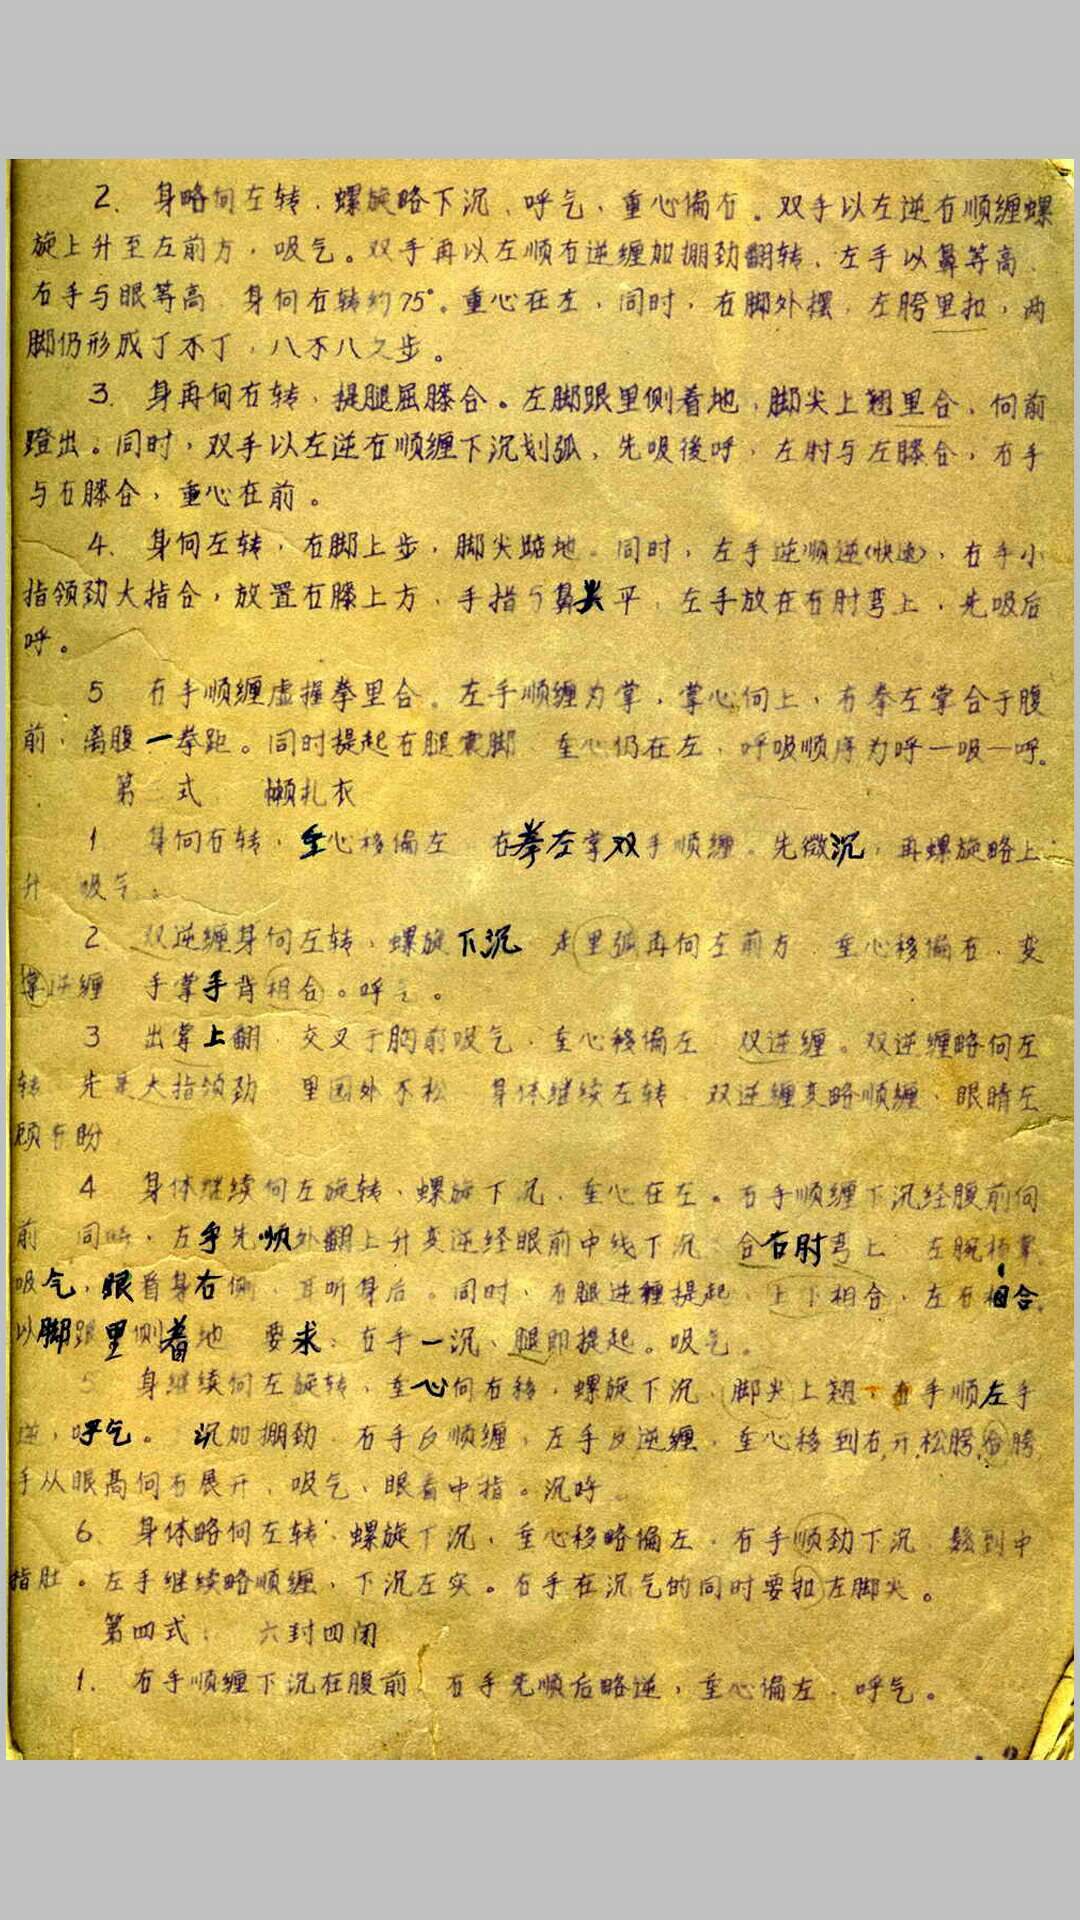 2. 身略向左转、螺旋略下沉、呼气，重心偏右。双手以左逆右顺缠螺
旋上升至左前方，吸气。双手再以左顺右逆缠加掤劲翻转、左手以鼻等高、
右手与眼等高、身向右转约75°。重心在左，同时，右脚外摆，左胯里扣，两
脚仍形成丁不丁，八不八之步。
3. 身再向右转，提腿屈膝合。左脚跟里侧着地，脚尖上翘里合，向前
蹬出。同时，双手以左逆右顺缠下沉划弧，先吸後呼，左肘与左膝合，右手
与右膝合，重心在前。
4. 身向左转，右脚上步，脚尖踮地。同时，左手逆顺逆（快速），右手小
指领劲大指合，放置右膝上方，手指与鼻尖平，左手放在右肘弯上，先吸后
呼。
5 右手顺缠虚握拳里合。左手顺缠为掌，掌心向上，右拳左掌合于腹
前，离腹一拳距。同时提起右腿震脚，重心仍在左，呼吸顺序为呼—吸—呼。
第二式 懒扎衣
1 身向右转，重心移偏左 右拳左掌双手顺缠。先微沉，再螺旋略上
升 吸气。
2. 双逆缠身向左转，螺旋下沉 走里弧再向左前方．重心移偏右．变
掌逆缠 手掌手背相合。呼气。
3 出掌上翻．交叉于胸前吸气．重心移偏左 双逆缠。双逆缠略向左
转 先是大指领劲 里圆外不松 身体继续左转．双逆缠变略顺缠、眼睛左
顾右盼
4 身体继续向左旋转、螺旋下沉．重心在左。右手顺缠下沉经腹前向
前 同时，左手先顺外翻上升变逆经眼前中线下沉 合右肘弯上 左腕
吸气，眼看身右侧，耳听身后。同时，右腿逆缠提起，上下相合，左右相合．
以脚跟里侧着地 要求：右手一沉、腿即提起。吸气。
5 身继续向左旋转，重心向右移，螺旋下沉．脚尖上翘，右手顺左手
逆，呼气。 沉加掤劲．右手反顺缠，左手反逆缠．重心移到右，开，松胯，胯，
手从眼高向右展开，吸气，眼看中指。沉呼。
6．身体略向左转、螺旋下沉，重心移略偏左．右手顺劲下沉．鬆到中
指肚。左手继续略顺缠，下沉左实。右手在沉气的同时要扣左脚尖。
第四式： 六封四闭
1. 右手顺缠下沉在腹前 右手先顺后略逆，重心偏左．呼气。